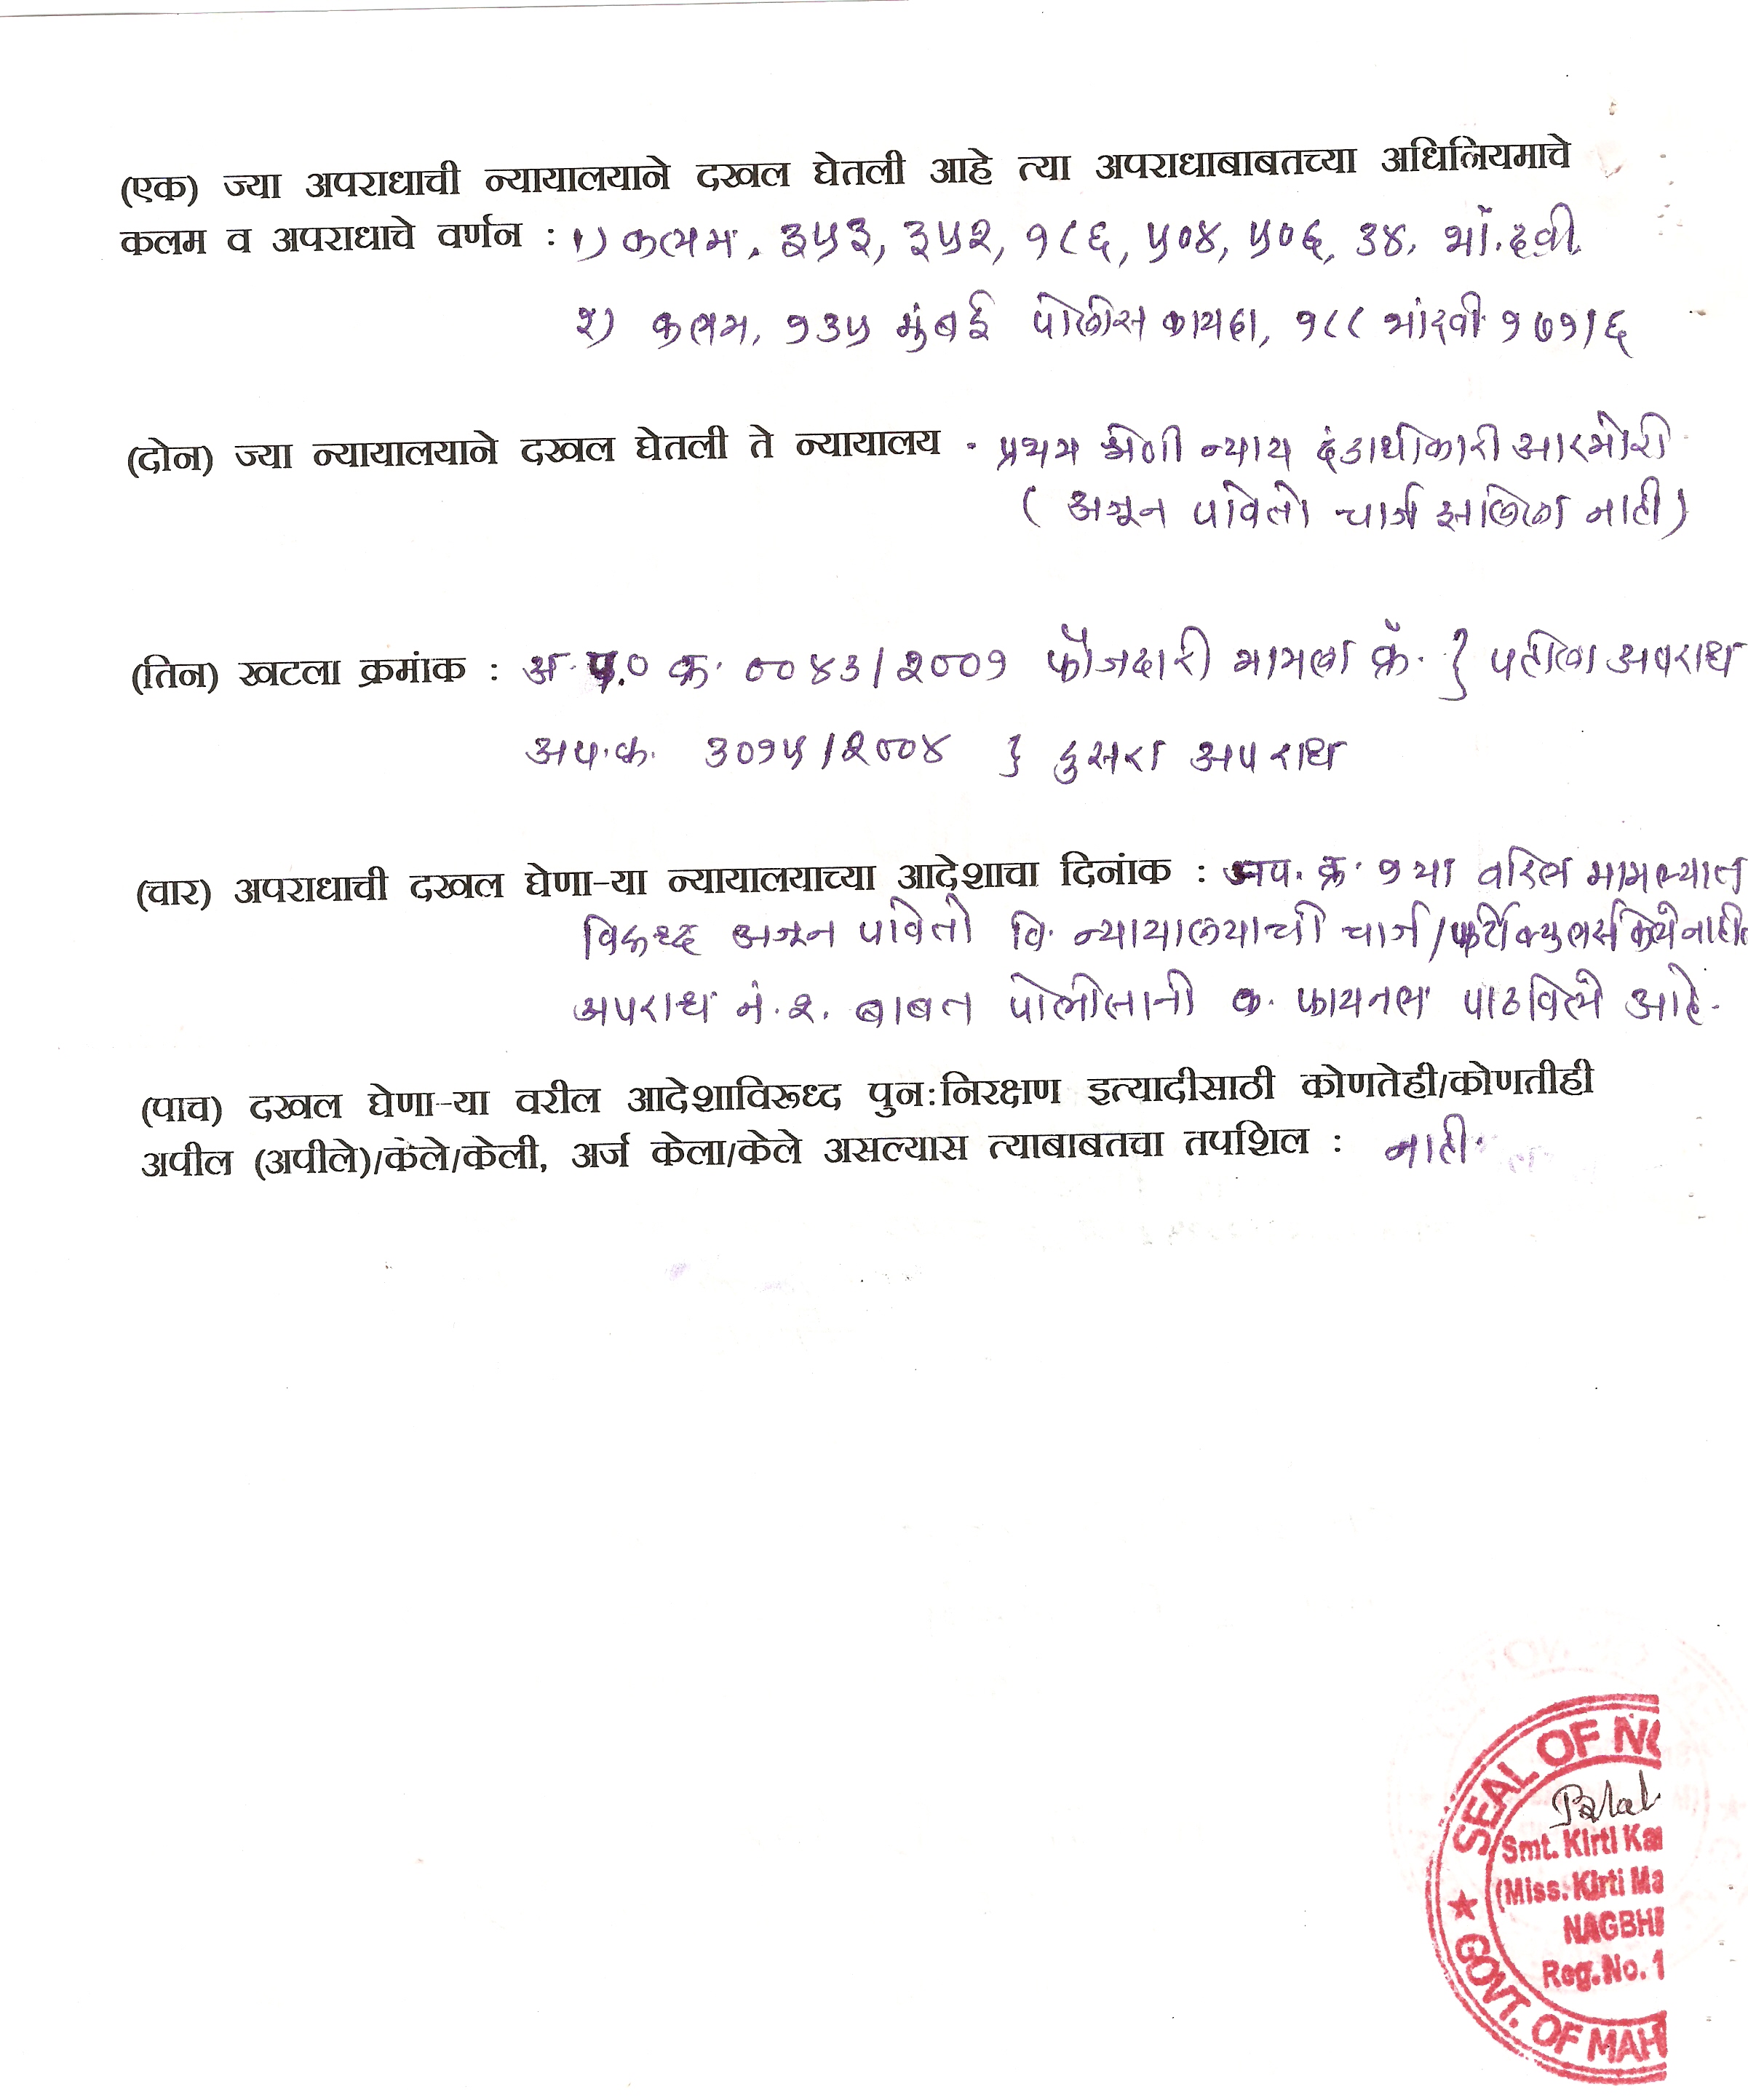 (एक) ज्या अपराधाची न्यायालयाने दखल घेतली आहे त्या अपराधाबाबतच्या अधिनियमाचे
कलम व अपराधाचे वर्णन : १) कलम. ३५३, ३५२, १८६, ५०४, ५०६, ३४, भां.दवी.
२) कलम, १३५ मुंबई पोलीस कायदा, १८८ भांदवी १७१/६
(दोन) ज्या न्यायालयाने दखल घेतली ते न्यायालय - प्रथम श्रेणी न्याय दंडाधीकारी आरमोरी
( अजून पावेतो चार्ज झालेला नाही)
(तिन) खटला क्रमांक : अ.प.० क्र. ००४३/२००१ फौजदारी मामला क्रं. } पहीला अपराध
अप.क्र. ३०१५/२००४ } दुसरा अपराध
(चार) अपराधाची दखल घेणा-या न्यायालयाच्या आदेशाचा दिनांक : अप. क्र. १ या वरिल मामल्यात
विरूध्द अजून पावेतो वि. न्यायालयाची चार्ज/पर्टीक्युलर्स नाही
अपराध नं. २. बाबत पोलीसानी क. फायनल पाठविले आहे.
(पाच) दखल घेणा-या वरील आदेशाविरूध्द पुन:निरक्षण इत्यादीसाठी कोणतेही/कोणतीही
अपील (अपीले)/केले/केली, अर्ज केला/केले असल्यास त्याबाबतचा तपशिल : नाही.
SEAL OF NO
Smt. Kirti Ka
(Miss. Kirti Ma
NAGBHI
Reg. No. 1
GOVT. OF MAH